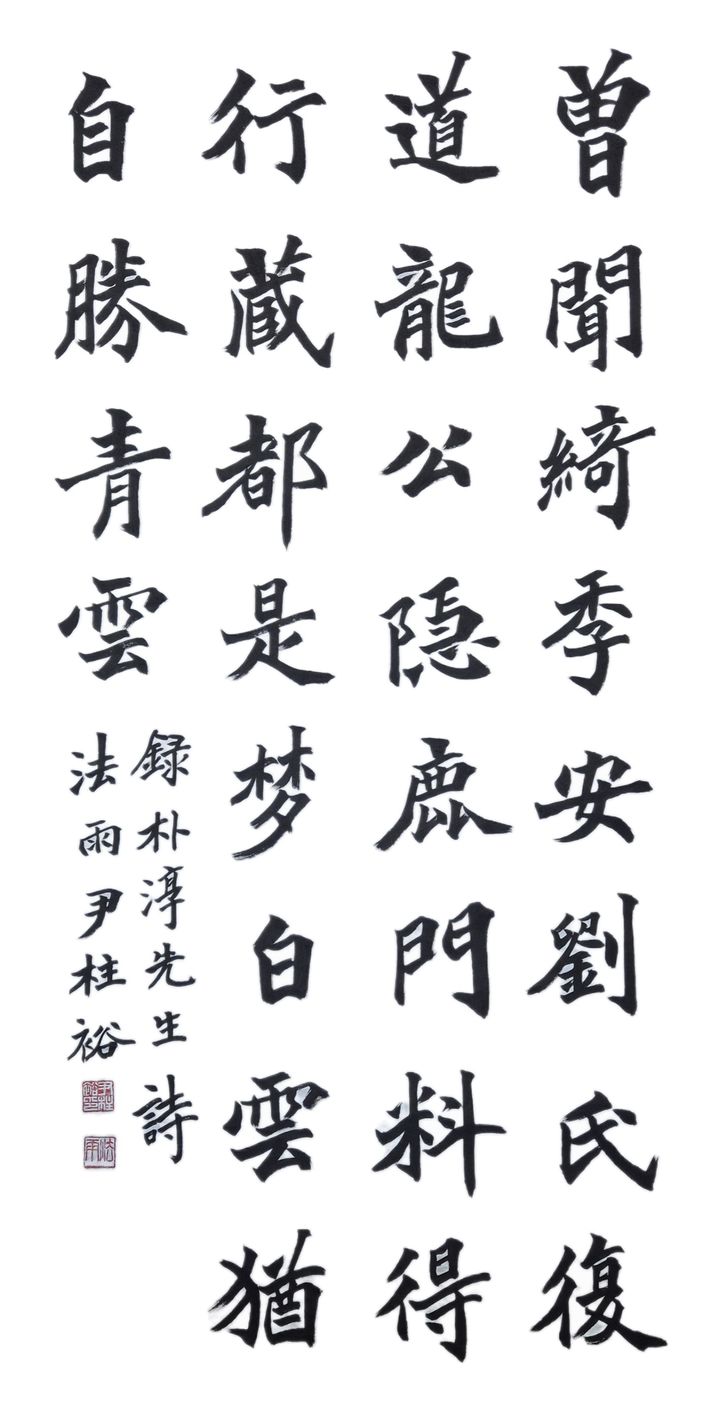 曽聞綺季安劉氏復
道龍公隠鹿門料得
行蔵都是梦白雲猶
自勝青雲
録朴淳先生詩
法雨尹柱裕